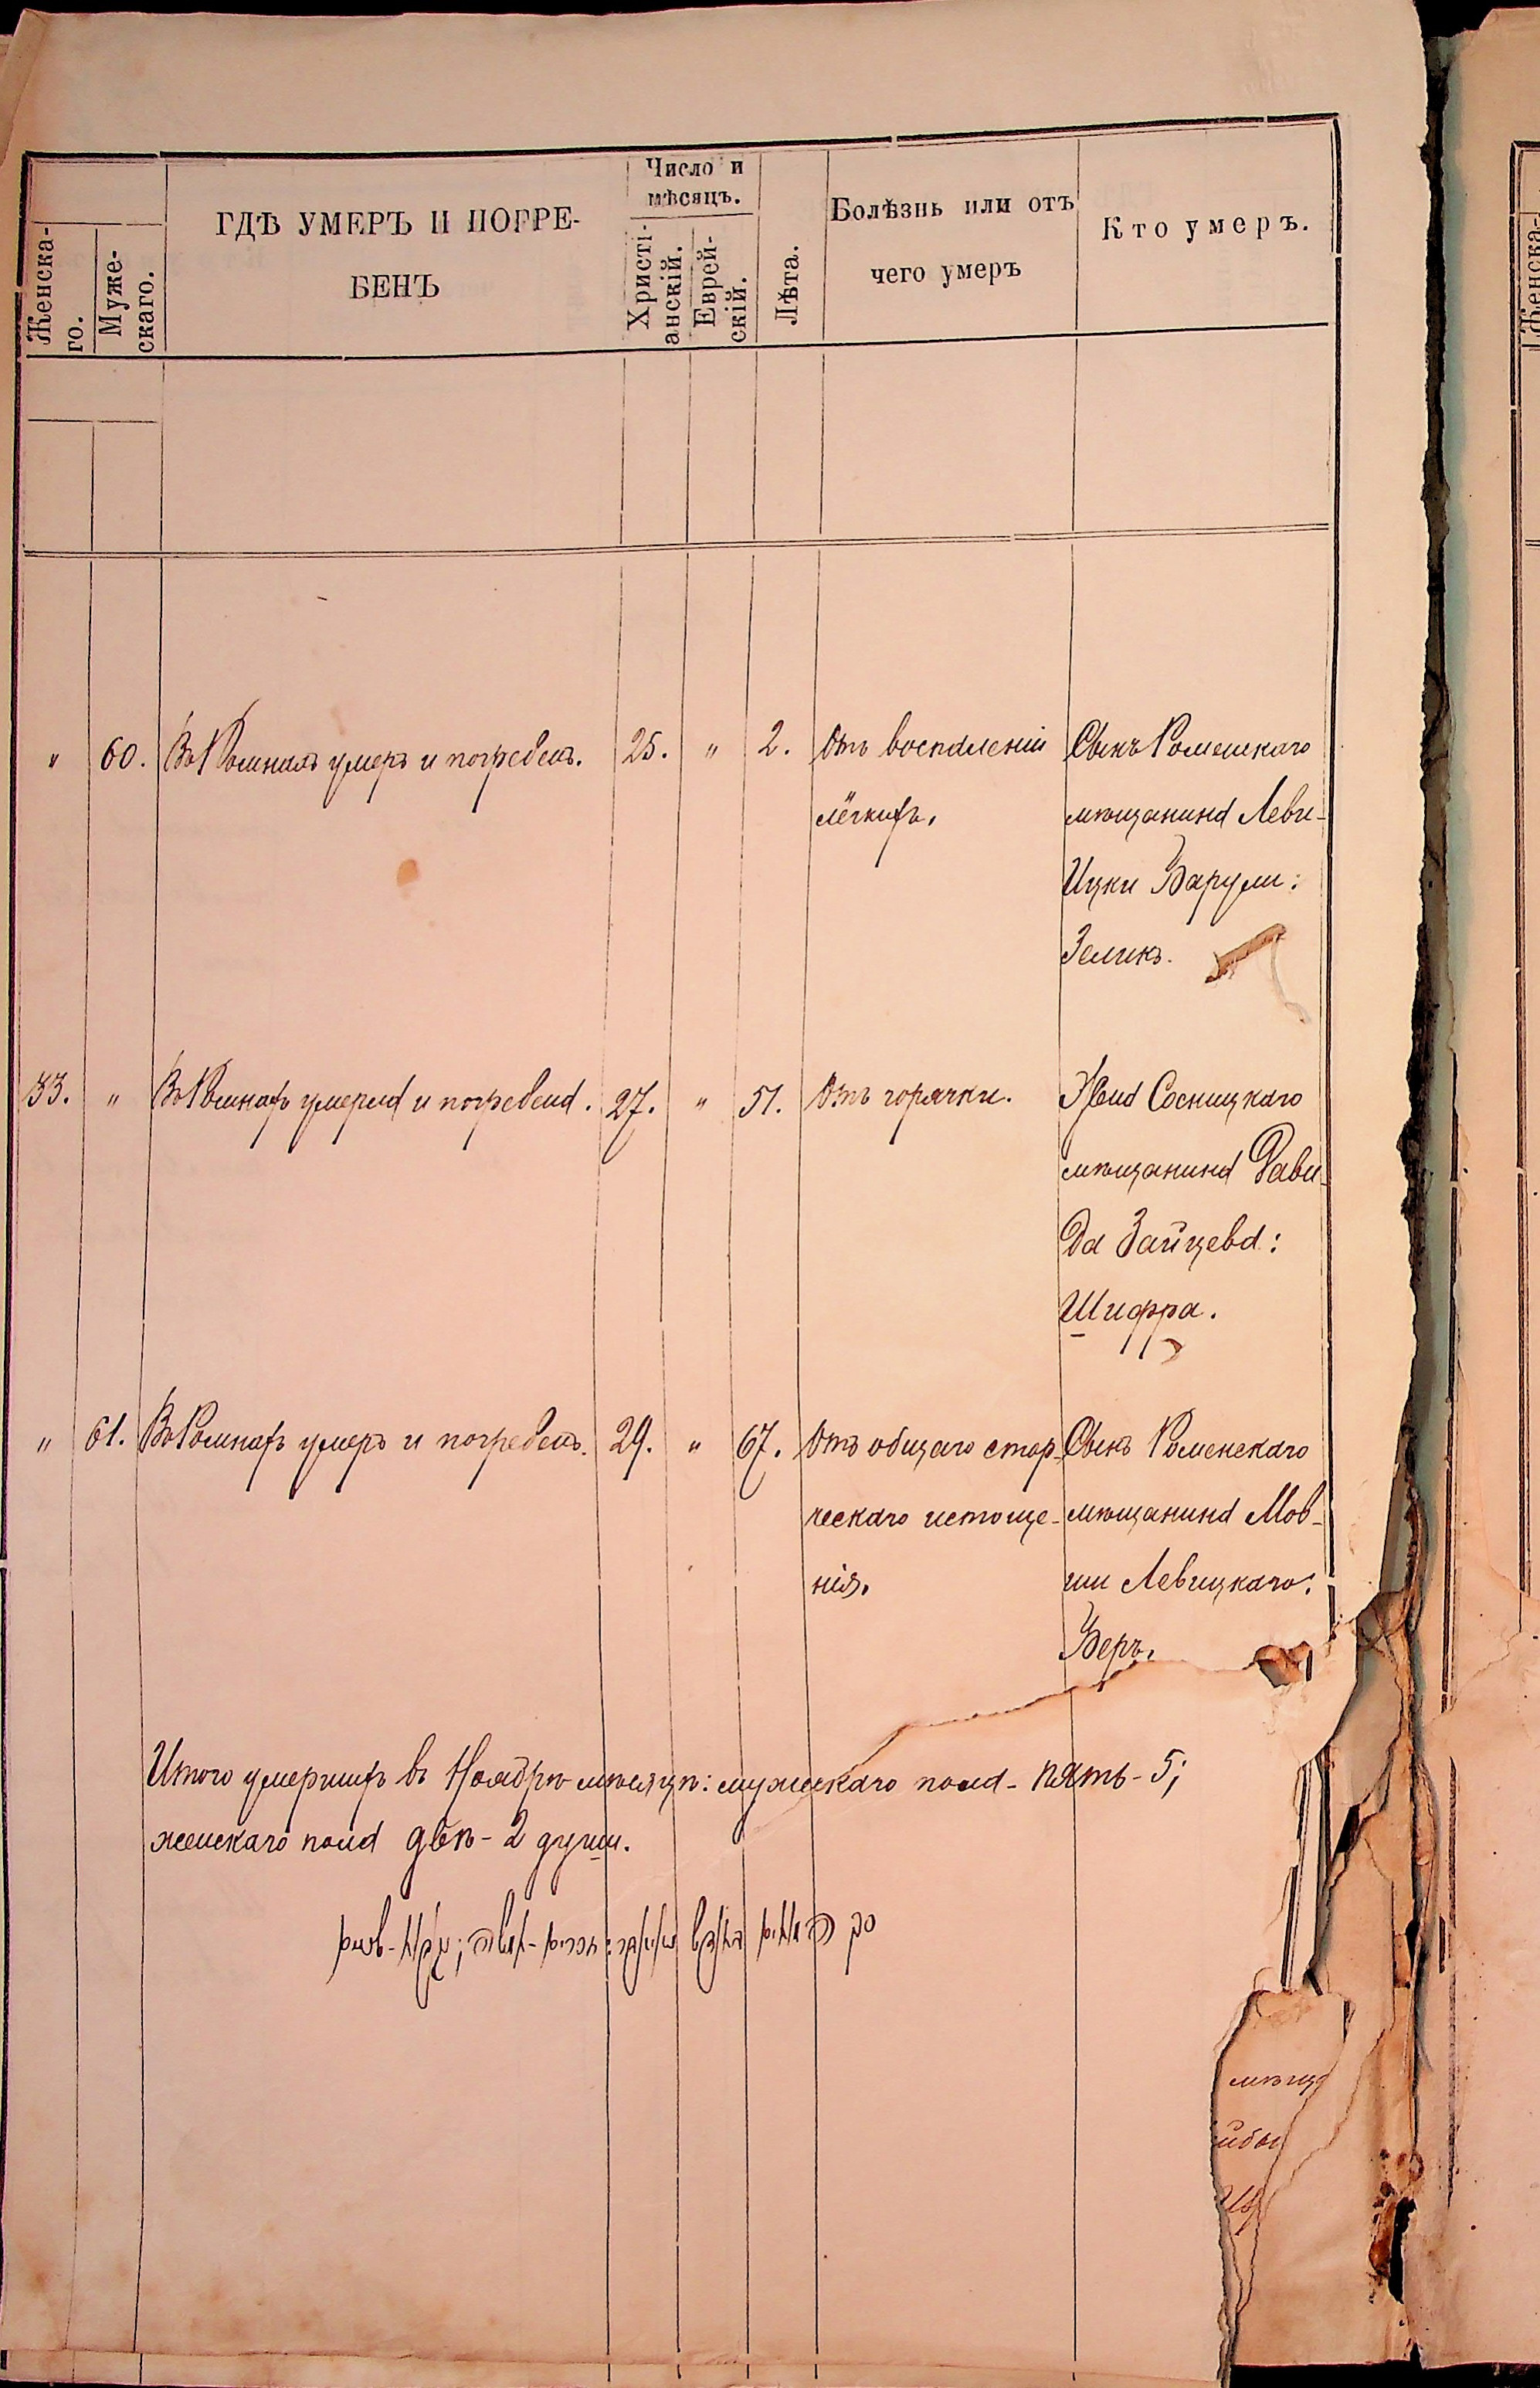 Женска-
го.
Муже-
скаго.
ГДѢ УМЕРЪ И ПОГРЕ-
БЕНЪ
Число и
мѣсяцъ.
Христі-
анскій.
Еврей-
скій.
Лѣта.
Болѣзнь или отъ
чего умеръ
Кто умеръ.
" 60. Въ Ромнахъ умеръ и погребенъ. 25. " 2. Отъ воспаленія Сынъ Роменскаго
лёгкихъ. мѣщанина Леви-
Ицки Барули:
Зеликъ.
33. " Въ Ромнахъ умерла и погребена. 27. " 51. Отъ горячки. Жена Сосницкаго
мѣщанина Дави-
да Зайцева:
Шифра.
" 61. Въ Ромнахъ умеръ и погребенъ. 29. " 67. Отъ общаго стар- Сынъ Роменскаго
ческаго истоще- мѣщанина Мов-
нія. ши Левицкаго:
Беръ.
Итого умершихъ въ Ноябрѣ мѣсяцѣ: мужескаго пола - пять - 5;
женскаго пола двѣ - 2 души.
мѣща